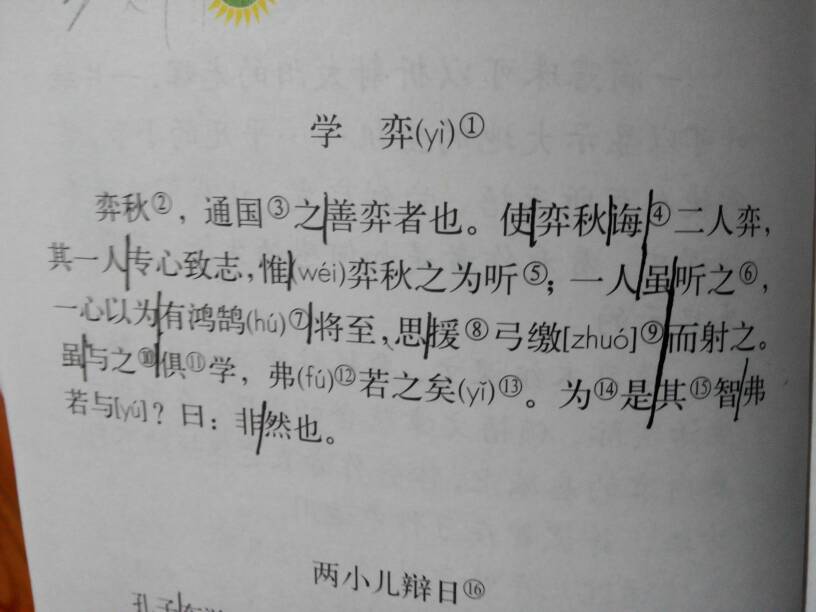 学 弈(yì)①
弈秋②，通国③之善弈者也。使弈秋诲④二人弈，
其一人专心致志，惟(wéi)弈秋之为听⑤；一人虽听之⑥，
一心以为有鸿鹄(hú)⑦将至，思援⑧弓缴[zhuó]⑨而射之。
虽与之⑩俱⑪学，弗(fú)⑫若之矣(yǐ)⑬。为⑭是其⑮智弗
若与[yú]？曰：非然也。
两小儿辩日⑯
孔子东